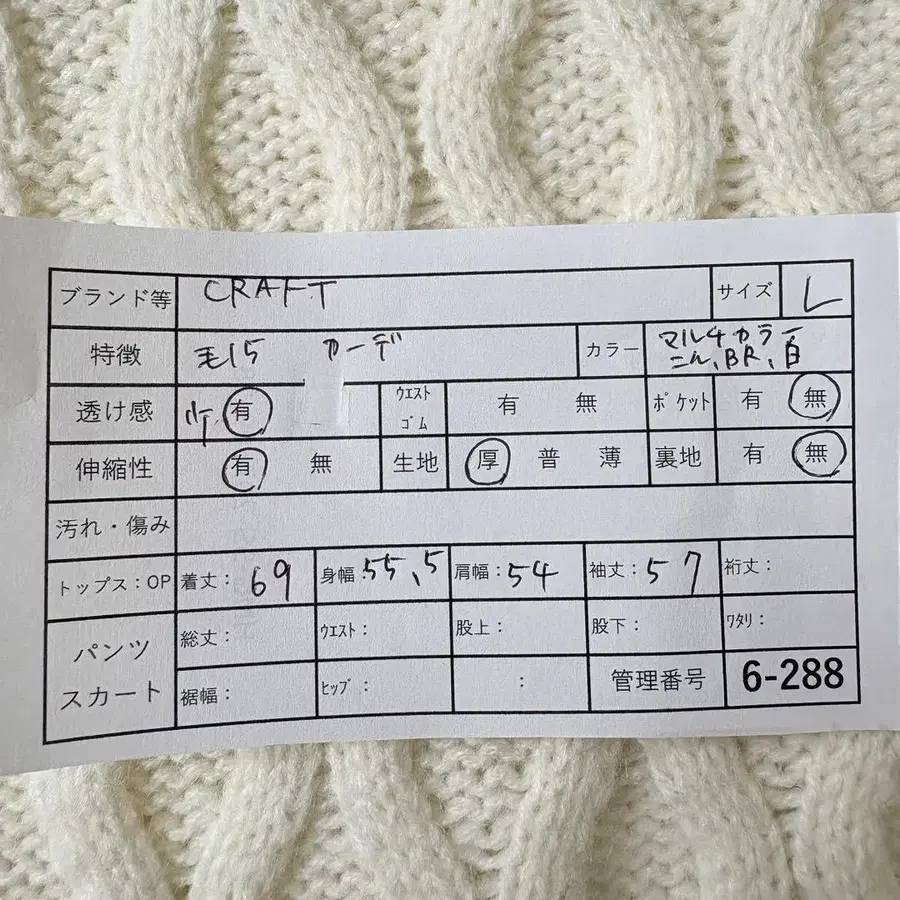 ブランド等 CRAFT サイズ L
特徴 毛15 カーデ カラー マルチカラー
こん、BR、白
透け感 有 ウエスト ゴム 有 無 ポケット 有 無
伸縮性 有 無 生地 厚 普 薄 裏地 有 無
汚れ・傷み
トップス:OP 着丈: 69 身幅: 55.5 肩幅: 54 袖丈: 57 裄丈:
パンツ 総丈: ウエスト: 股上: 股下: ワタリ:
スカート 裾幅: ヒップ: : 管理番号 6-288